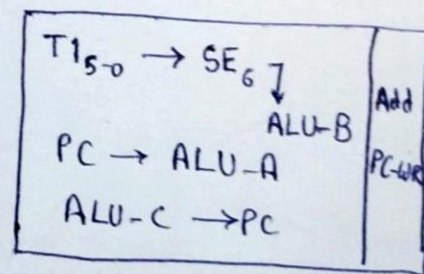 T1₅₋₀ → SE₆
ALU-B
PC → ALU-A
ALU-C → PC
Add
PC-WR